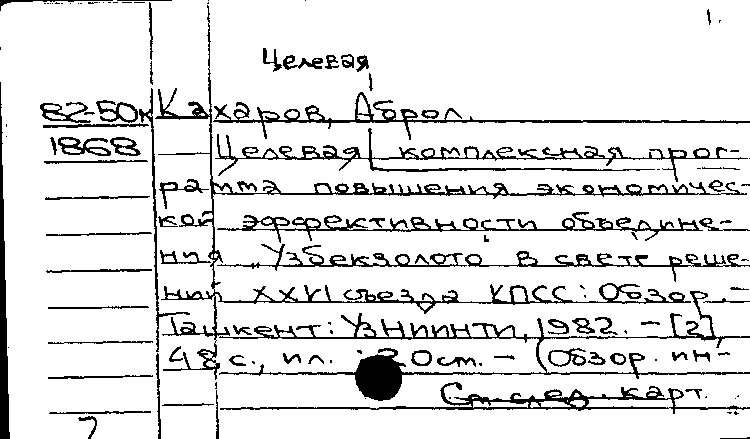 1.
Целевая
82-50к Кахаров, Аброл.
1868 Целевая комплексная прог-
рамма повышения экономичес-
кой эффективности объедине-
ния „Узбекзолото" в свете реше-
ний XXVI съезда КПСС: Обзор. -
Ташкент: УзНИИНТИ, 1982. - [2],
48 с., ил. : 20 см. - (Обзор. ин-
См. след. карт.